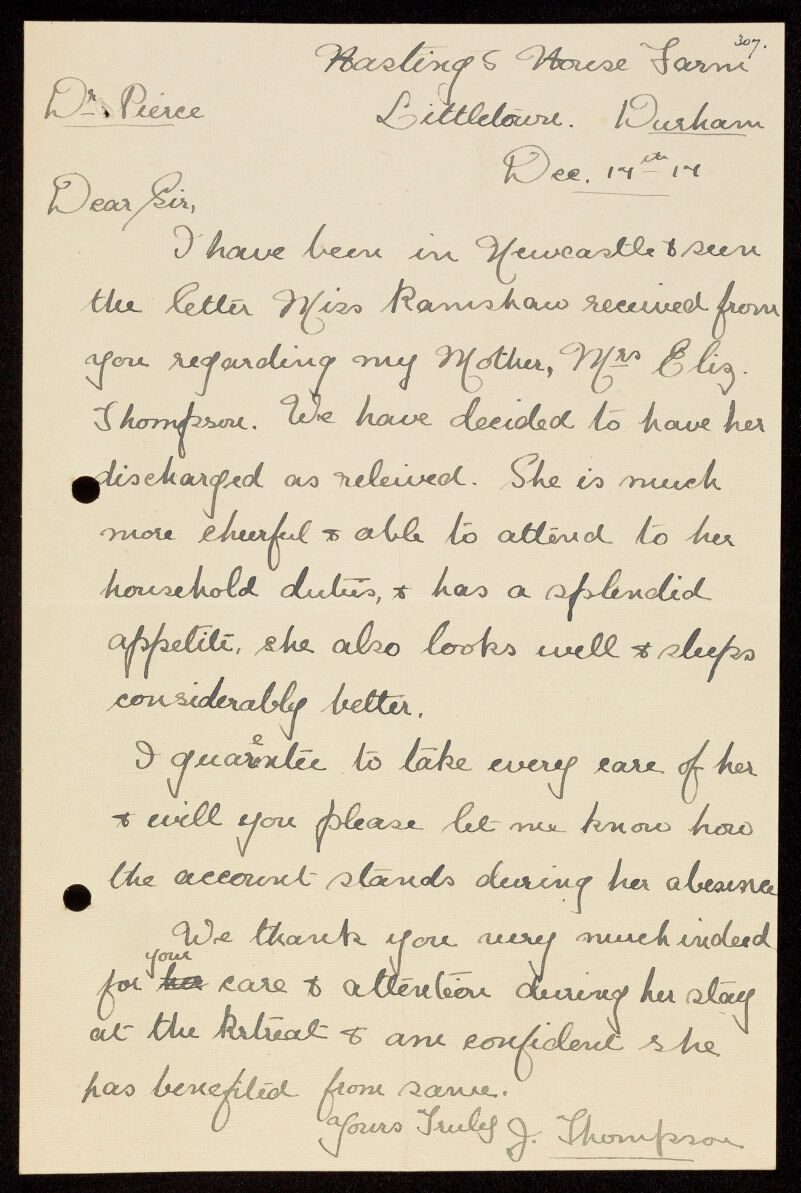 307.
Hastings House Farm
Dr. Pierce
Littletown. Durham
Dec. 17th 17
Dear Sir,
I have been in Newcastle & seen
the letter Miss Ramshaw received from
you regarding my Mother, Mrs Eliz.
Thompson. We have decided to have her
discharged as releived. She is much
more cheerful & able to attend to her
household duties, & has a splendid
appetite, she also looks well & sleeps
considerably better.
I guarentee to take every care of her
& will you please let me know how
the account stands during her abesence
We thank you very much indeed
for your her care & attention during her stay
at the Retreat & am confident she
has benefited from same.
Yours Truly J. Thompson